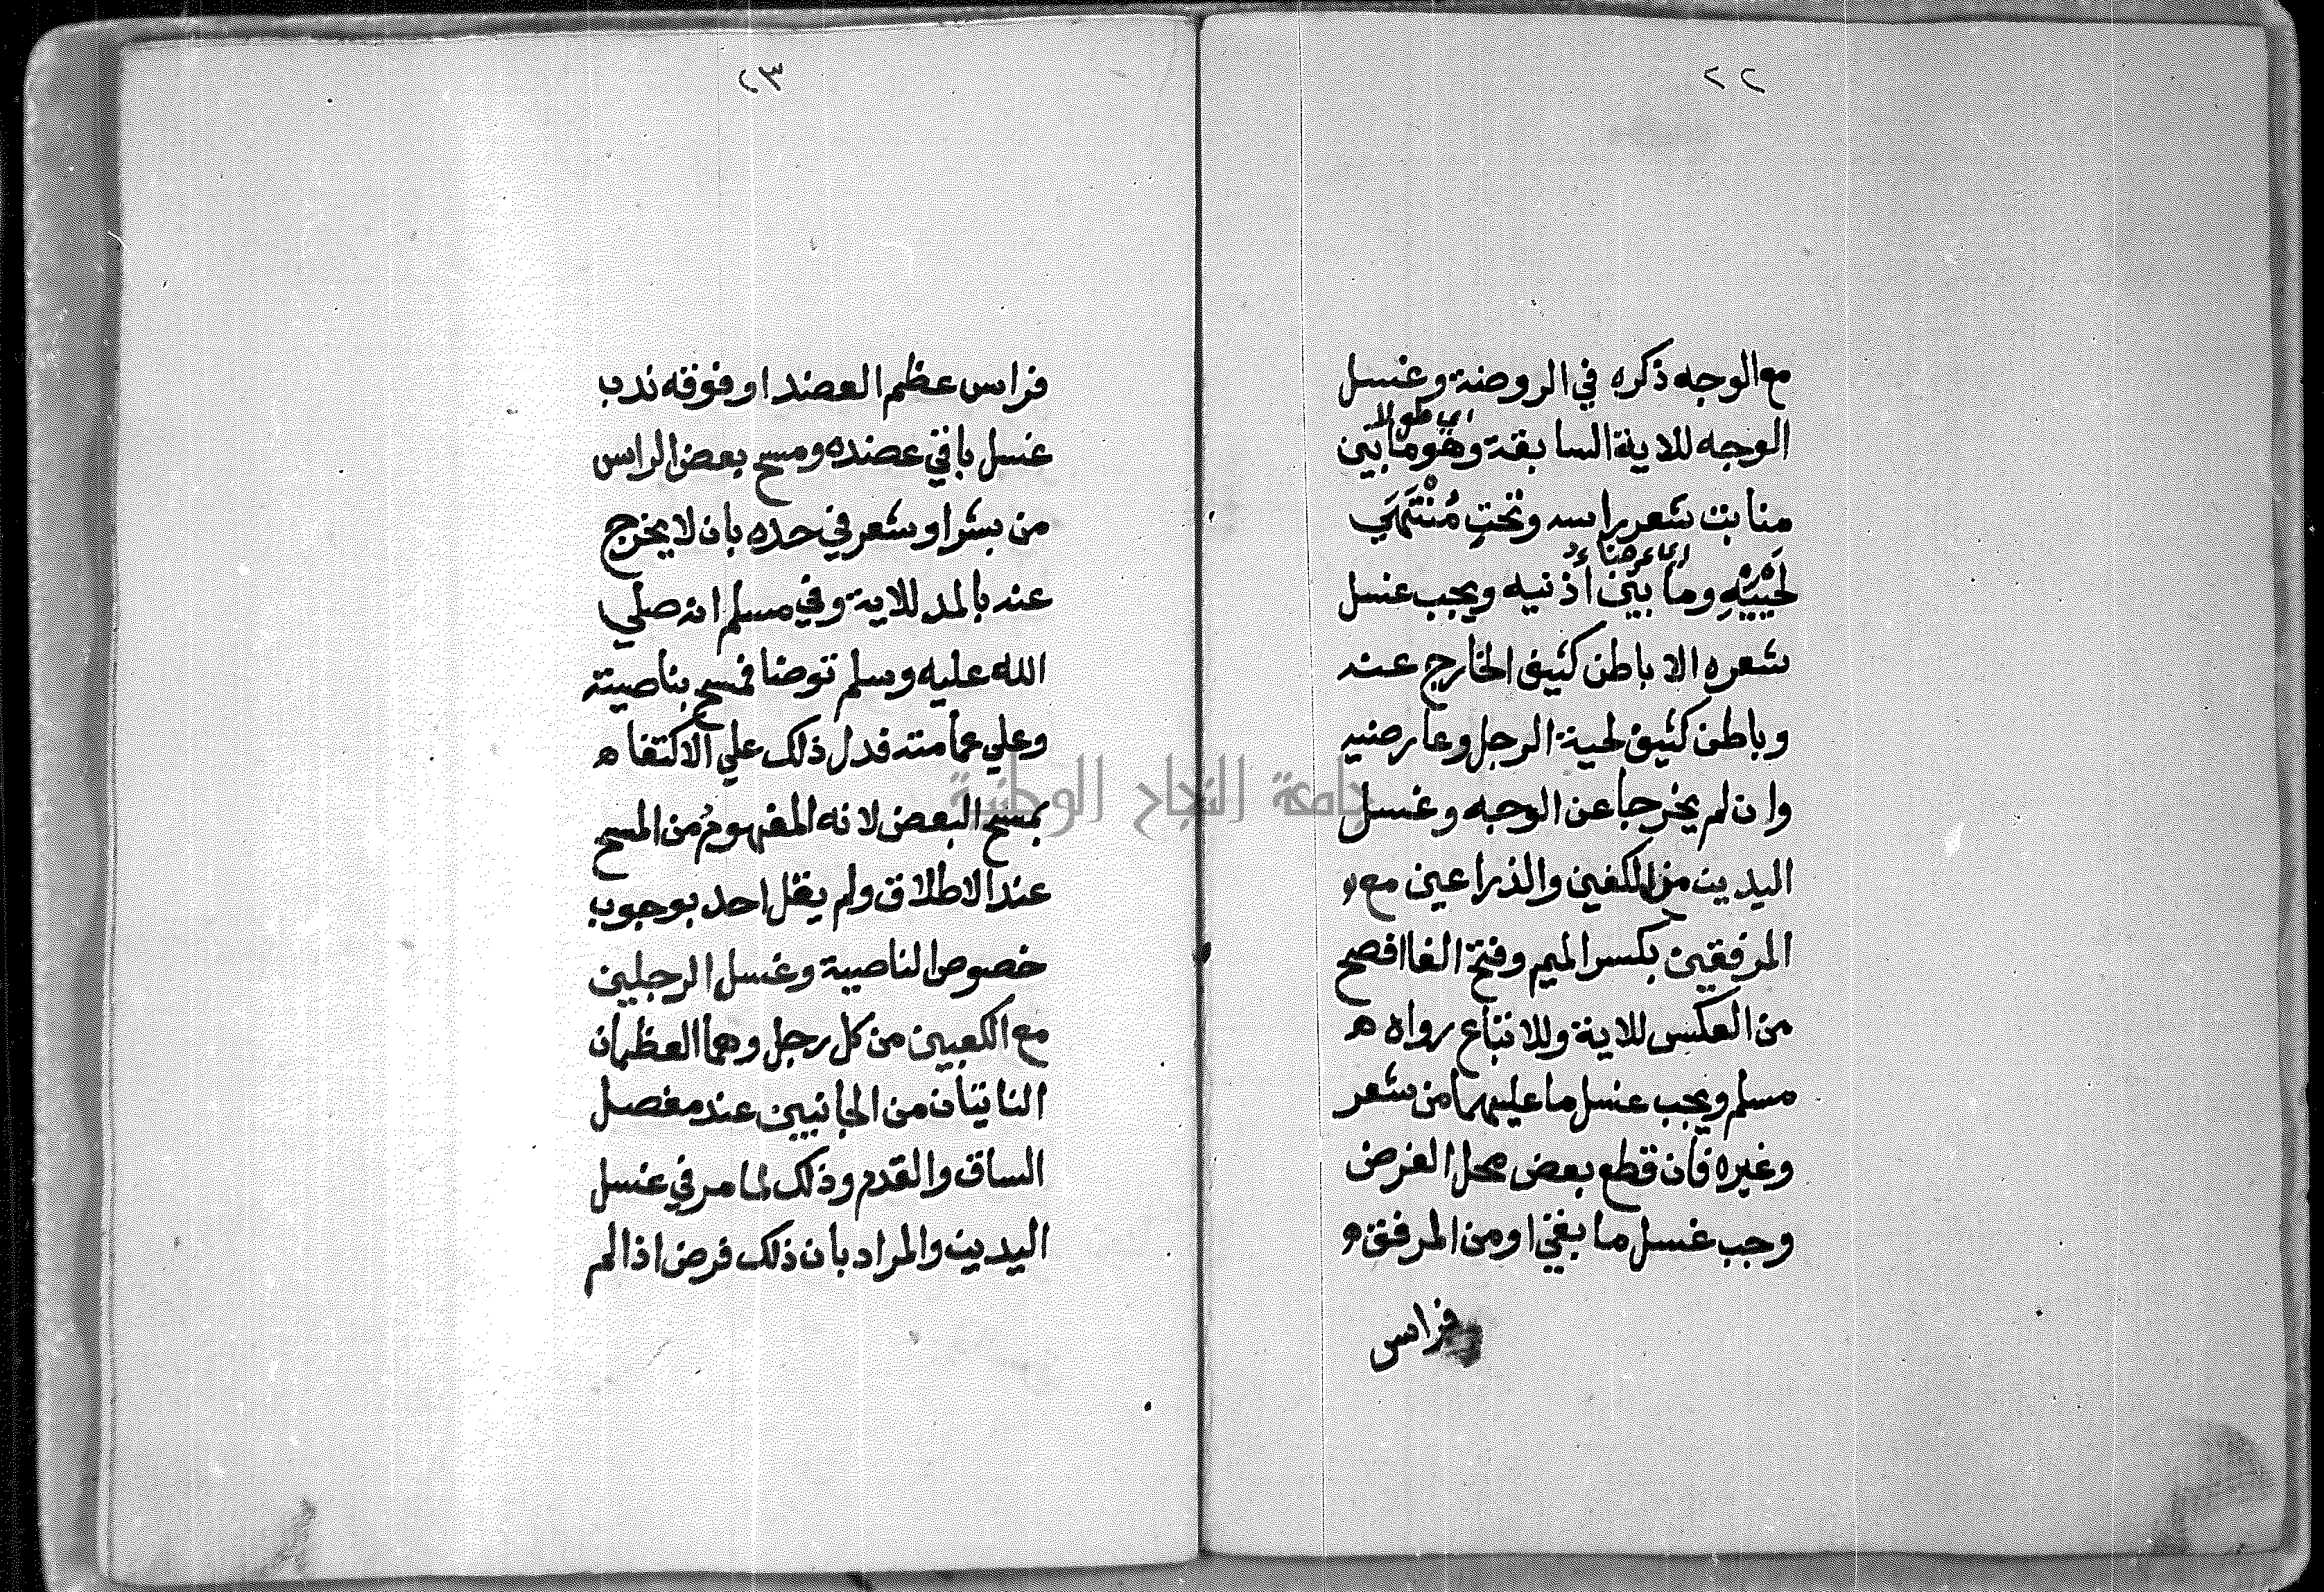 ٢٢
مع الوجه ذكره في الروضة وغسل
اي طولا
الوجه للاية السابقة وهو ما بين
منابت شعر راسه وتحت مُنْتَهَي
اي عرضا
لَحْيَيْهِ وما بين اذنيه ويجب غسل
شعره الا باطن كثيف الخارج عنه
وباطن كثيف لحية الرجل وعارضيه
وان لم يخرجا عن الوجه وغسل
اليدين من الكفين والذراعين مع
المرفقين بكسر الميم وفتح الفا افصح
من العكس للاية وللاتباع رواه ه
مسلم ويجب غسل ما عليهما من شعر
وغيره فان قطع بعض محل الفرض
وجب غسل ما بقي او من المرفق
فراس
٢٣
فراس عظم العضد او فوقه ندب
غسل باقي عضده ومسح بعض الراس
من بشر او شعر في حده بان لا يخرج
عنه بالمد للاية وفي مسلم انه صلي
الله عليه وسلم توضا فمسح بناصيته
وعلي عمامته فدل ذلك علي الاكتفا ه
بمسح البعض لانه المفهوم من المسح
عند الاطلاق ولم يقل احد بوجوب
خصوص الناصية وغسل الرجلين
مع الكعبين من كل رجل وهما العظمان
الناتيان من الجانبين عند مفصل
الساق والقدم وذلك لما مر في غسل
اليدين والمراد بان ذلك فرض اذا لم
جامعة النجاح الوطنية